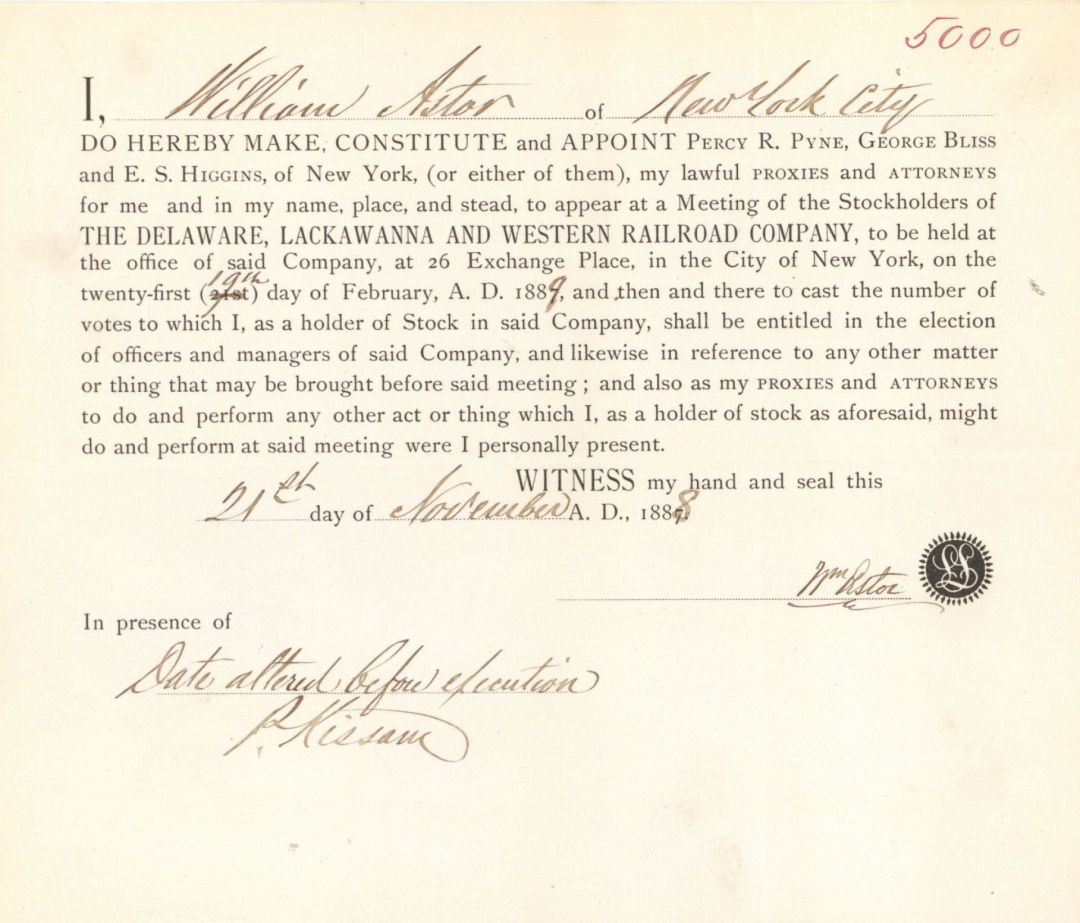 5000
I, William Astor of New York City
DO HEREBY MAKE, CONSTITUTE and APPOINT PERCY R. PYNE, GEORGE BLISS
and E. S. HIGGINS, of New York, (or either of them), my lawful PROXIES and ATTORNEYS
for me and in my name, place, and stead, to appear at a Meeting of the Stockholders of
THE DELAWARE, LACKAWANNA AND WESTERN RAILROAD COMPANY, to be held at
the office of said Company, at 26 Exchange Place, in the City of New York, on the
19th
twenty-first (21st) day of February, A. D. 1889, and then and there to cast the number of
votes to which I, as a holder of Stock in said Company, shall be entitled in the election
of officers and managers of said Company, and likewise in reference to any other matter
or thing that may be brought before said meeting; and also as my PROXIES and ATTORNEYS
to do and perform any other act or thing which I, as a holder of stock as aforesaid, might
do and perform at said meeting were I personally present.
WITNESS my hand and seal this
21st day of November A. D., 1888.
Wm Astor LS
In presence of
Date altered before execution
P. Kissam